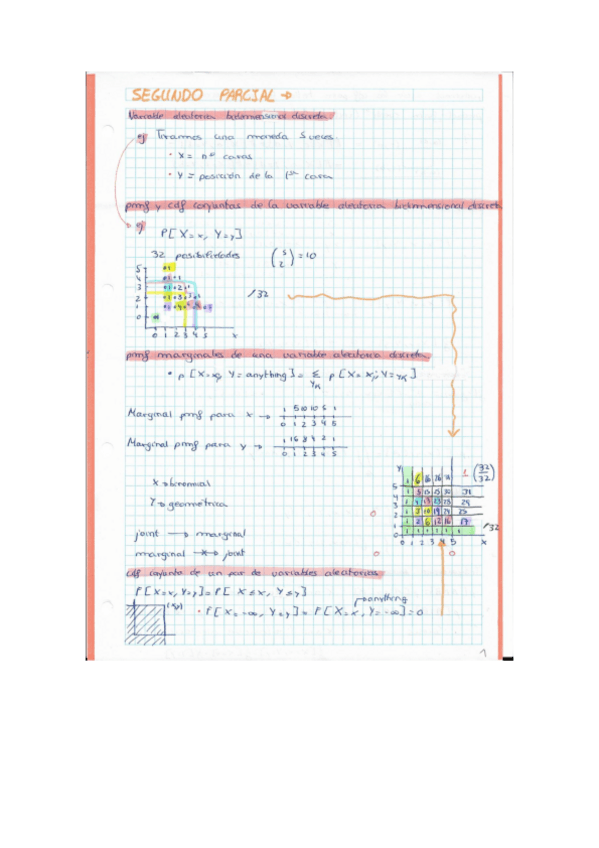 SEGUNDO PARCIAL →
Variable aleatoria bidimensional discreta:
ej Tiramos una moneda 5 veces.
• X = nº caras
• Y = posición de la 1ª cara
pmf y cdf conjuntas de la variable aleatoria bidimensional discreta
ej
P[X=x, Y=y]
32 posibilidades (5 2) = 10
/32
0 1 2 3 4 5 x
pmf marginales de una variable aleatoria discreta
Marginal pmf para x → 1 5 10 10 5 1
0 1 2 3 4 5
Marginal pmf para y → 1 16 8 4 2 1
0 1 2 3 4 5
X → binomial
Y → geométrica
joint → marginal
marginal joint
(32/32)
/32
0 1 2 3 4 5 x
cdf conjunto de un par de variables aleatorias
P[X=x, Y=y] = P[X≤x, Y≤y]
anything
• P[X=-∞, Y=y] = P[X=x, Y=-∞] = 0
1